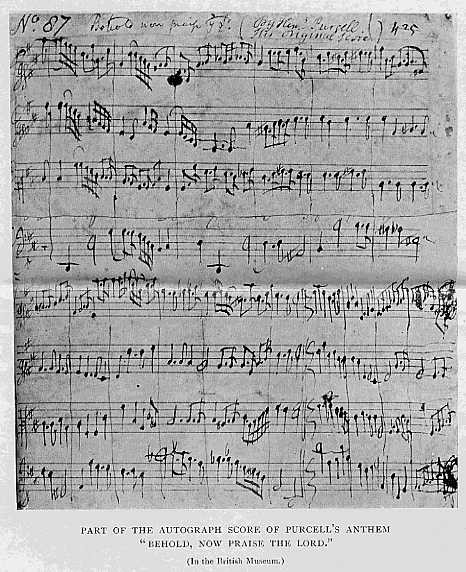 No. 87 Behold now praise ye. (By Henry Purcell. ) 425
His original Score
PART OF THE AUTOGRAPH SCORE OF PURCELL'S ANTHEM
"BEHOLD, NOW PRAISE THE LORD."
(In the British Museum.)